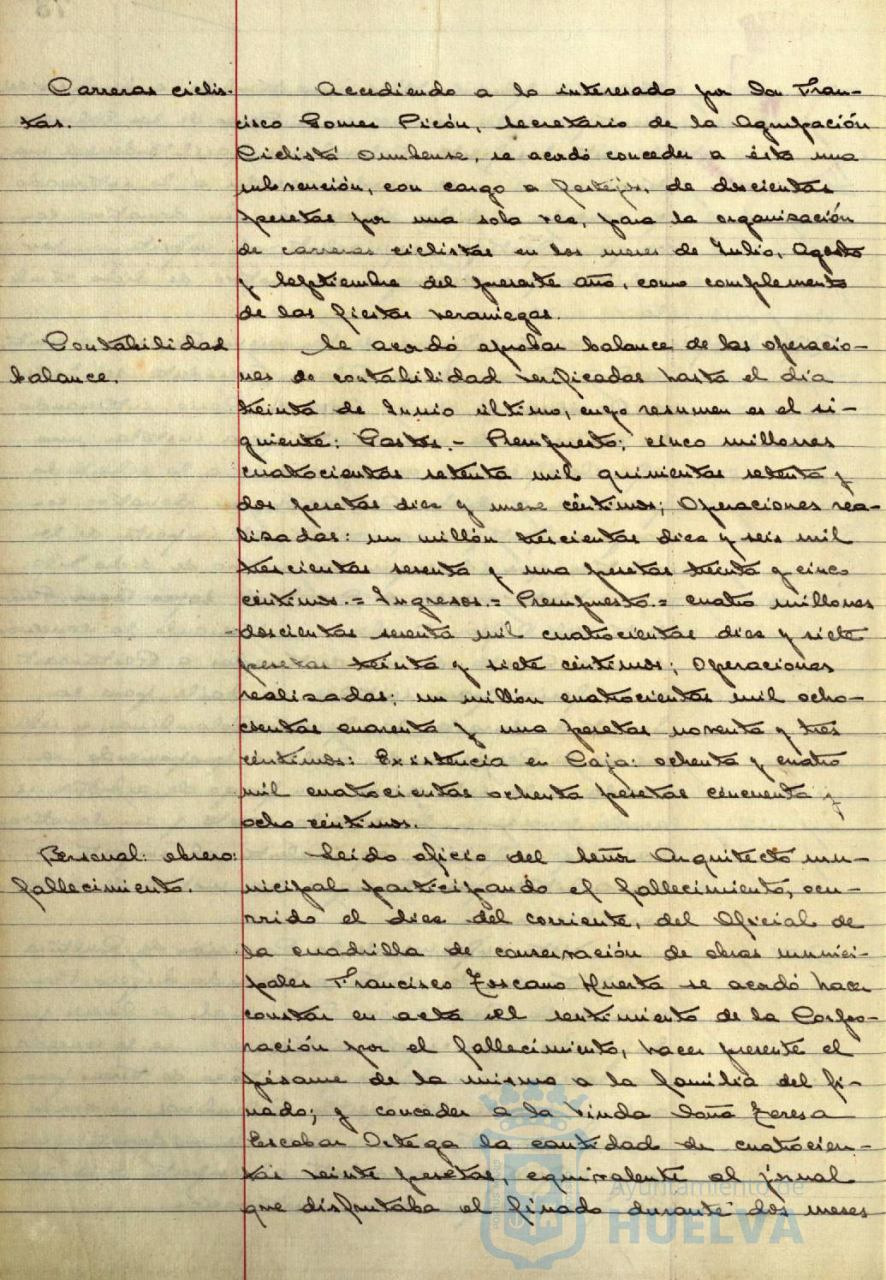 Carreras ciclis-
tas.
Accediendo a lo interesado por don Fran-
cisco Gomez Picón, secretario de la Agrupación
Ciclista Onubense, se acordó conceder a ésta una
subvención, con cargo a festejos, de doscientas
pesetas por una sola vez, para la organización
de carreras ciclistas en los meses de Julio, Agosto
y Septiembre del presente año, como complemento
de las fiestas veraniegas.
Contabilidad
balance.
Se acordó aprobar balance de las operacio-
nes de contabilidad verificadas hasta el día
treinta de Junio último, cuyo resumen es el si-
guiente: Gastos.- Presupuesto; cinco millones
cuatrocientas setenta mil quinientas setenta y
dos pesetas diez y nueve céntimos; Operaciones rea-
lizadas: un millón trescientas diez y seis mil
trescientas sesenta y una pesetas treinta y cinco
céntimos.= Ingresos.= Presupuesto.= cuatro millones
doscientas sesenta mil cuatrocientas diez y siete
pesetas treinta y siete céntimos; Operaciones
realizadas; un millón cuatrocientas mil ocho-
cientas cuarenta y una pesetas noventa y tres
céntimos: Existencia en Caja: ochenta y cuatro
mil cuatrocientas ochenta pesetas cincuenta y
ocho céntimos.
Personal: obrero:
fallecimiento.
Leido oficio del Señor Arquitecto mu-
nicipal participando el fallecimiento, ocu-
rrido el diez del corriente, del Oficial de
la cuadrilla de conservación de obras munici-
pales Francisco Toscano Huerta se acordó hacer
constar en acta el sentimiento de la Corpo-
ración por el fallecimiento, hacer presente el
pésame de la misma a la familia del fi-
nado; y conceder a la viuda Doña Teresa
Escobar Ortega la cantidad de cuatrocien-
tas veinte pesetas, equivalente al jornal
que disfrutaba el finado durante dos meses
Ayuntamiento de
HUELVA